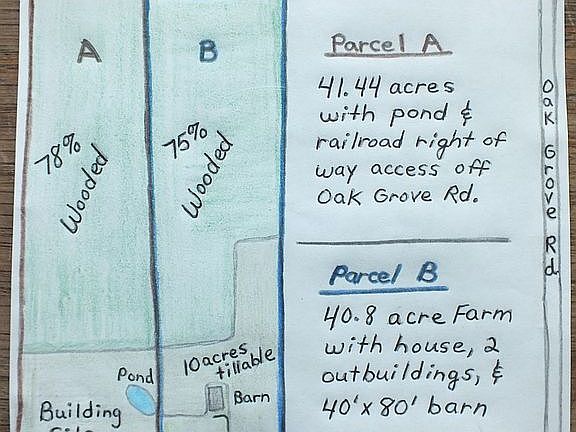 A
B
78%
Wooded
75%
Wooded
10 acres
tillable
Pond
Barn
Building
Parcel A
41.44 acres
with pond &
railroad right of
way access off
Oak Grove Rd.
Parcel B
40.8 acre Farm
with house, 2
outbuildings, &
40'x 80' barn
Oak Grove Rd